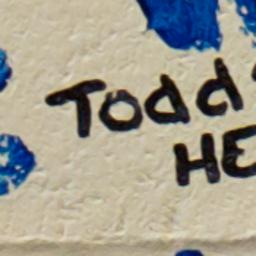 Todd
HE